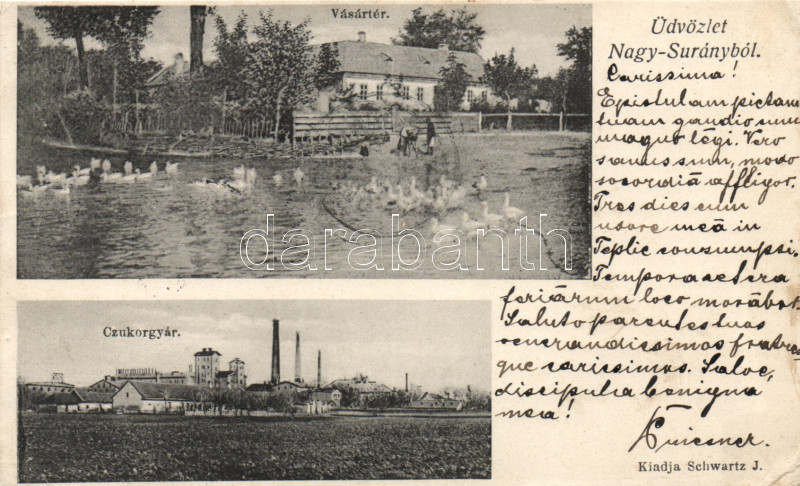 Vásártér.
Üdvözlet
Nagy-Surányból.
Carissima!
Epistulam pictam
tuam gaudio cum
magno legi. Vero
sanus sum, modo
socordiā affligor.
Tres dies cum
uxore meā in
Teplic consumpsi.
Tempora cetera
feriārum loco morābor.
Saluto parentes tuos
venerandissimos fratres
que carissimos. Salve,
discipula benigna
mea!
Czukorgyár.
Kiadja Schwartz J.
darabanth